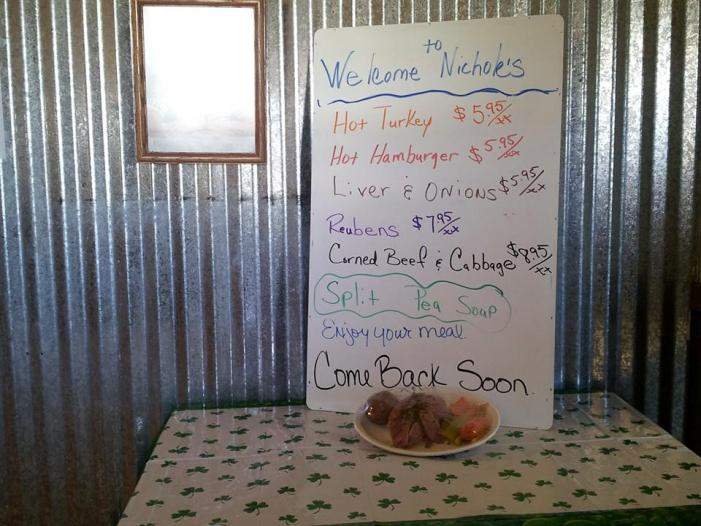 Welcome to Nichole's
Hot Turkey $5.95/xx
Hot Hamburger $5.95/xx
Liver & Onions $5.95/xx
Reubens $7.95/xx
Corned Beef & Cabbage $8.95/xx
Split Pea Soap
Enjoy your meal
Come Back Soon